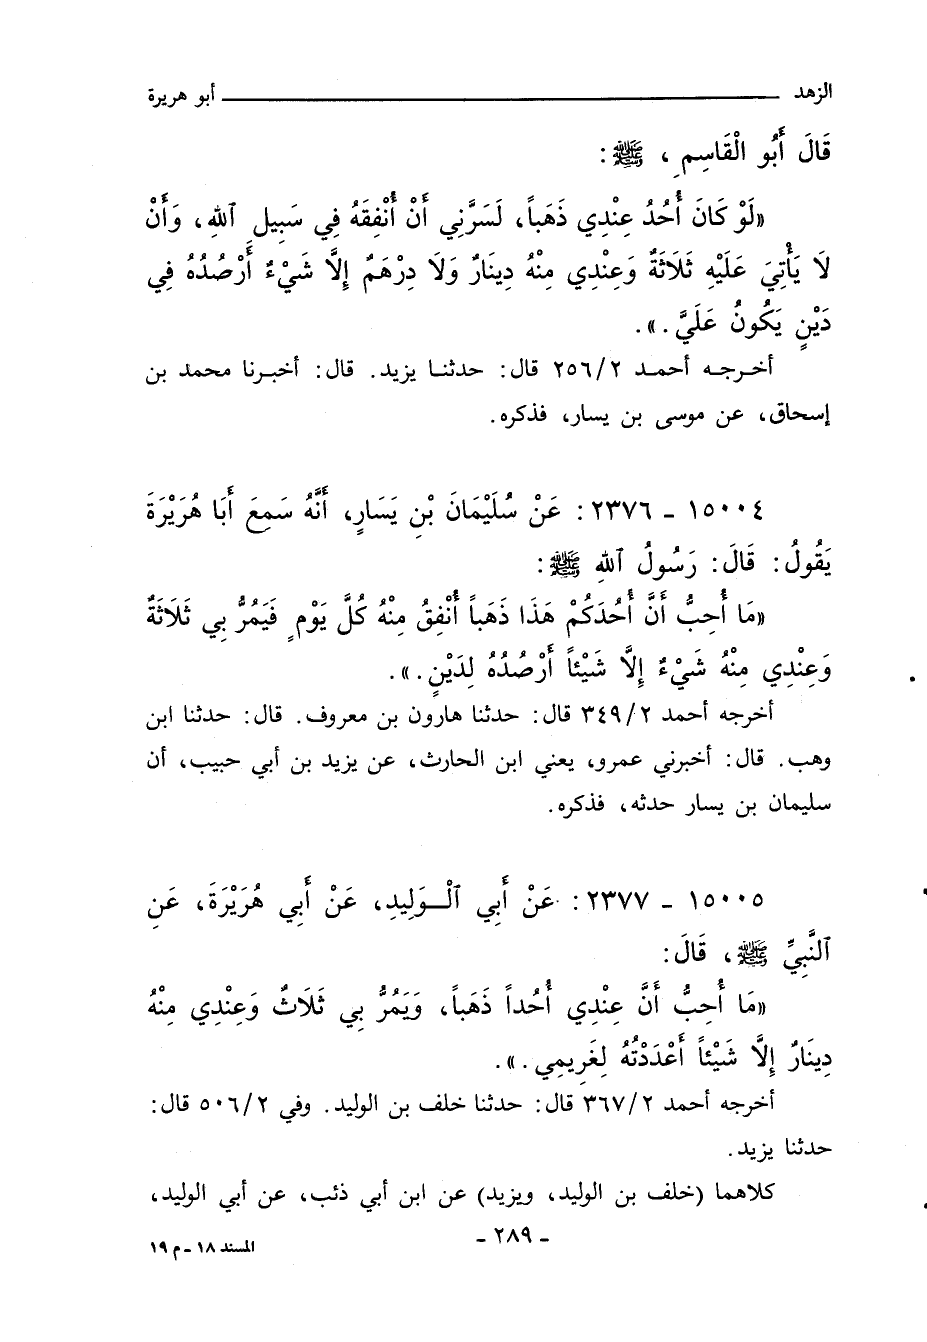 الزهد ــــــــــــــــــــــــــــ أبو هريرة
قَالَ أَبُو الْقَاسِمِ ، ﷺ :
«لَوْ كَانَ أُحُدُ عِنْدِي ذَهَباً، لَسَرَّنِي أَنْ أُنْفِقَهُ فِي سَبِيلِ ٱللهِ، وَأَنْ
لَا يَأْتِيَ عَلَيْهِ ثَلَاثَةٌ وَعِنْدِي مِنْهُ دِينَارٌ وَلَا دِرْهَمٌ إِلَّا شَيْءٌ أَرْصُدُهُ فِي
دَيْنٍ يَكُونُ عَلَيَّ.».
أخرجه أحمد ٢/٢٥٦ قال: حدثنا يزيد. قال: أخبرنا محمد بن
إسحاق، عن موسى بن يسار، فذكره.
١٥٠٠٤ - ٢٣٧٦: عَنْ سُلَيْمَانَ بْنِ يَسَارٍ، أَنَّهُ سَمِعَ أَبَا هُرَيْرَةَ
يَقُولُ: قَالَ: رَسُولُ ٱللهِ ﷺ:
«مَا أُحِبُّ أَنَّ أُحُدَكُمْ هَذَا ذَهَباً أُنْفِقُ مِنْهُ كُلَّ يَوْمٍ فَيَمُرُّ بِي ثَلَاثَةٌ
وَعِنْدِي مِنْهُ شَيْءٌ إِلَّا شَيْئاً أَرْصُدُهُ لِدَيْنٍ.».
أخرجه أحمد ٢/٣٤٩ قال: حدثنا هارون بن معروف. قال: حدثنا ابن
وهب. قال: أخبرني عمرو، يعني ابن الحارث، عن يزيد بن أبي حبيب، أن
سليمان بن يسار حدثه، فذكره.
١٥٠٠٥ - ٢٣٧٧: عَنْ أَبِي ٱلْـوَلِيدِ، عَنْ أَبِي هُرَيْرَةَ، عَنِ
ٱلنَّبِيِّ ﷺ، قَالَ:
«مَا أُحِبُّ أَنَّ عِنْدِي أُحُداً ذَهَباً، وَيَمُرُّ بِي ثَلَاثٌ وَعِنْدِي مِنْهُ
دِينَارٌ إِلَّا شَيْئاً أَعْدَدْتُهُ لِغَرِيمِي.».
أخرجه أحمد ٢/٣٦٧ قال: حدثنا خلف بن الوليد. وفي ٢/٥٠٦ قال:
حدثنا يزيد.
كلاهما (خلف بن الوليد، ويزيد) عن ابن أبي ذئب، عن أبي الوليد،
- ٢٨٩ -
المسند ١٨ - م ١٩